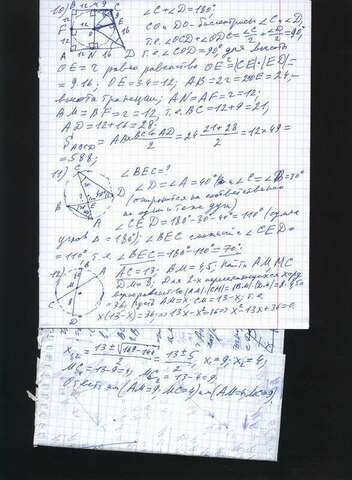 10) B 12 M 9 C ∠C+∠D=180°
CO и DO - биссектрисы ∠C и ∠D,
т.е. ∠OCD+∠ODC=∠C/2+∠D/2=90°,
т.е. ∠COD=90°, для высоты
OE=r верно равенство OE²=|CE|·|ED|=
=9·16; OE=3·4=12; AB=2r=2OE=24-
высота трапеции; AN=AF=r=12,
BM=BF=r=12, т.е. BC=12+9=21,
AD=12+16=28;
S ABCD = AB·(BC+AD)/2 = 24·(21+28)/2 = 12·49=
=588;
11) ∠BEC=?
∠D=∠A=40° и ∠C=∠B=30°
(опираются на соответственно
одни и те же дуги)
∠CED=180°-30°-40°=110° (сумма
углов Δ=180°), ∠BEC смежный с ∠CED=
=110°, т.е. ∠BEC=180°-110°=70°.
12) AC=13; BM=4,5; Найти AM, MC
DM=8; Для 2-х пересекающихся хорд
|AM|·|CM|=|BM|·|DM|=
=36; Пусть AM=x; CM=13-x, т.е.
x(13-x)=36 ⇒ 13x-x²=36 ⇒ x²-13x+36=0
x₁,₂=(13±√(169-144))/2=(13±5)/2, x₁=9; x₂=4;
MC₁=13-9=4; MC₂=13-4=9;
Ответ: или (AM=9, MC=4) или (AM=4, MC=9)